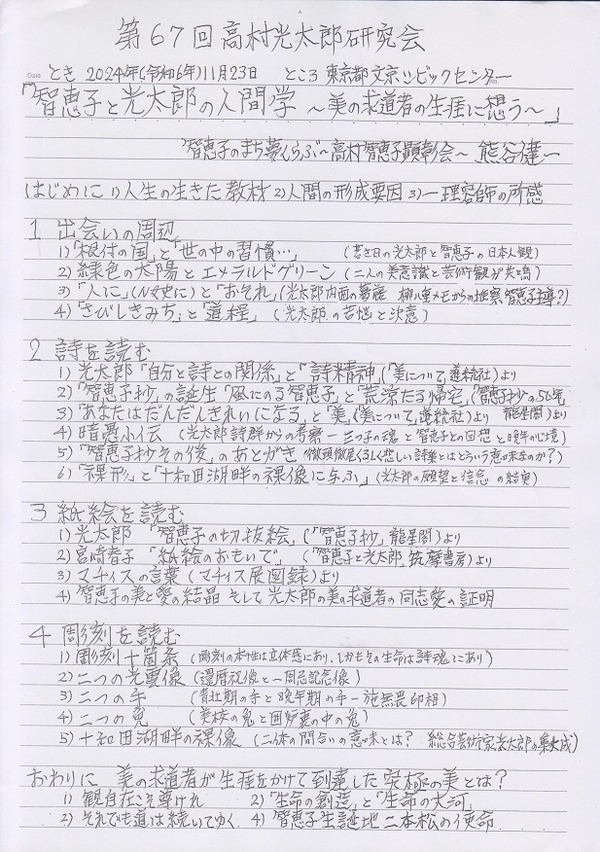 第67回高村光太郎研究会
Date とき 2024年(令和6年)11月23日 ところ 東京都文京シビックセンター
「智恵子と光太郎の人間学 ～美の求道者の生涯に想う～」
智恵子のまち夢くらぶ～高村智恵子顕彰会～ 熊谷健一
はじめに 1)人生の生きた教材 2)人間の形成要因 3)一理容師の所感
1 出会いの周辺
1)「根付の国」と「世の中の習慣…」 (若き日の光太郎と智恵子の日本人観)
2) 緑色の太陽とエメラルドグリーン (二人の美意識と芸術観が共鳴)
3)「人に」(N女史に)と「おそれ」(光太郎内面の葛藤 柳八重メモからの推察 智恵子主導?)
4)「さびしきみち」と「道程」 (光太郎の苦悩と決意)
2 詩を読む
1) 光太郎「自分と詩との関係」と「詩精神」(「美について」道統社)より
2)「智恵子抄」の誕生「風にのる智恵子」と「荒涼たる帰宅」(「智恵子抄の五十年」龍星閣)より
3)「あなたはだんだんきれいになる」と「美」(「美について」道統社)より
4) 暗愚小伝 (光太郎詩群からの考察ー三つ子の魂と智恵子との回想と晩年の心境)
5)「智恵子抄その後」のあとがき (徹頭徹尾くるしく悲しい詩集とはどういう意味なのか?)
6)「裸形」と「十和田湖畔の裸像に与ふ」(光太郎の願望と信念の結実)
3 紙絵を読む
1) 光太郎「智恵子の切抜絵」(「智恵子抄」龍星閣)より
2) 宮崎春子「紙絵のおもいで」 (「智恵子と光太郎」筑摩書房)より
3) マチィスの言葉 (マチィス展図録)より
4) 智恵子の美と愛の結晶 そして光太郎の美の求道者の同志愛の証明
4 彫刻を読む
1) 彫刻十箇条 (彫刻の本性は立体感にあり、しかもその生命は詩魂にあり)
2) 二つの光雲像 (還暦祝像と一周忌記念像)
3) 二つの手 (青壮期の手と晩年期の手ー施無畏印相)
4) 二つの兎 (美校の兎と囲炉裏の中の兎)
5) 十和田湖畔の裸像 (二体の間合いの意味とは? 総合芸術家光太郎の集大成)
おわりに 美の求道者が生涯をかけて到達した究極の美とは?
1) 観自在こそ尊けれ 2)「生命の創造」と「生命の大河」
2) それでも道は続いてゆく 4) 智恵子生誕地二本松の使命